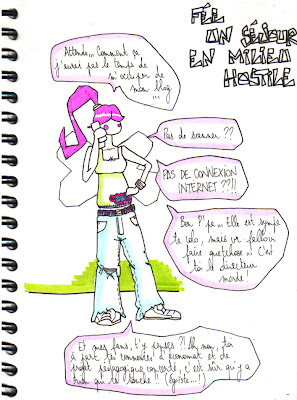 FÉE
UN SÉJOUR
EN MILIEU
HOSTILE
Attends... Comment ça
j'aurai pas le temps de
m'occuper de
mon blog
...
Pas de scanner ??
PAS DE CONNEXION
INTERNET ??!!
Bon P'pa... Elle est sympa
ta colo, mais va falloir
faire quelquechose... C'est
toi le directeur
merde !
Et mes fans, t'y penses ?! Ah, nan, toi
à part tes tonnelles d'économat et de
projet pédagogique concerté, c'est sûr qu'y a
rien qui te touche !! (Égoïste...!)